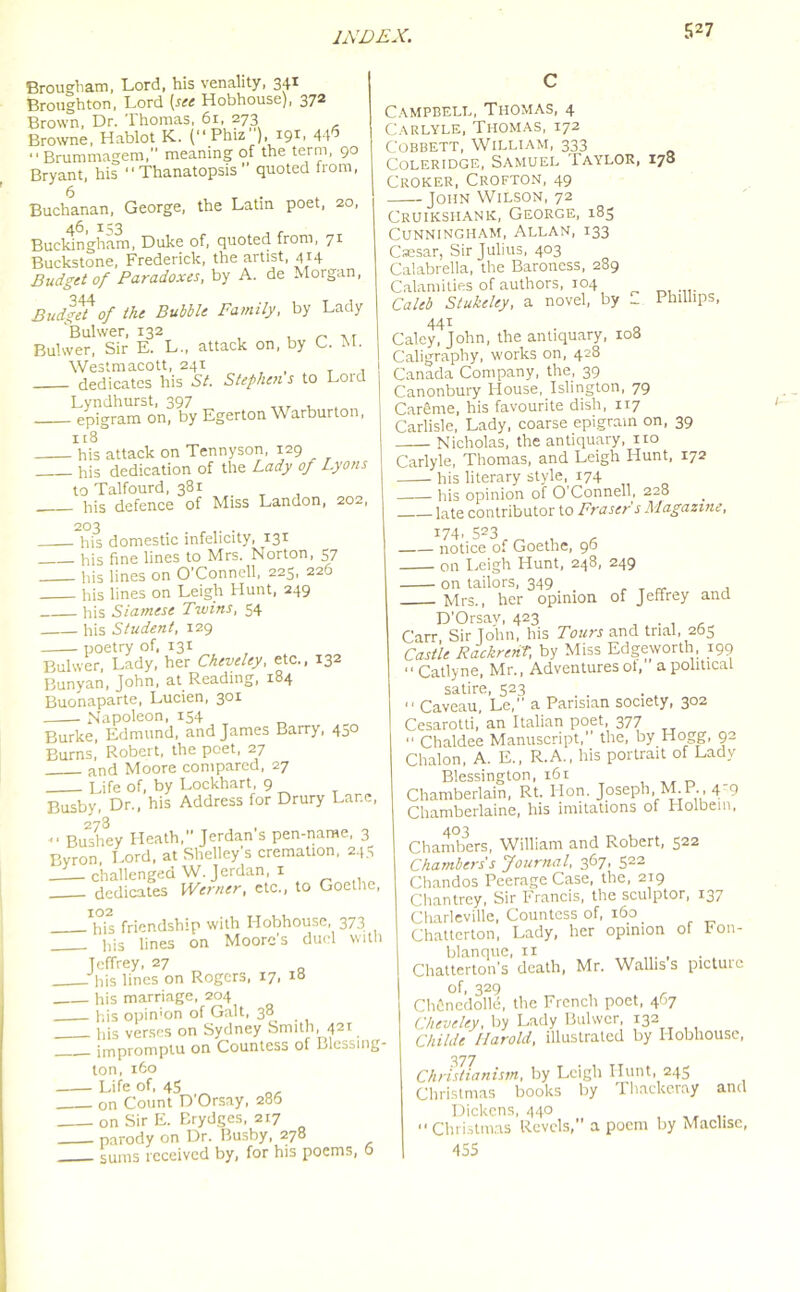 INDEX.
527
Brougham, Lord, his venality, 341
Broughton, Lord (see Hobhouse), 372
Brown, Dr. Thomas, 61, 273
Browne, Hablot K. ("Phiz"), 191, 446
"Brummagem," meaning of the term, 90
Bryant, his "Thanatopsis" quoted from,
6
Buchanan, George, the Latin poet, 20,
46, 153
Buckingham, Duke of, quoted from, 71
Buckstone, Frederick, the artist, 414
Budget of Paradoxes, by A. de Morgan,
344
Budget of the Bubble Family, by Lady
Bulwer, 132
Bulwer, Sir E. L., attack on, by C. M.
Westmacott, 241
—— dedicates his St. Stephen's to Lord
Lyndhurst, 397
—— epigram on, by Egerton Warburton,
118
—— his attack on Tennyson, 129
—— his dedication of the Lady of Lyons
to Talfourd, 381
—— his defence of Miss Landon, 202,
203
—— his domestic infelicity, 131
—— his fine lines to Mrs. Norton, 57
—— his lines on O'Connell, 225, 226
—— his lines on Leigh Hunt, 249
—— his Siamese Twins, 54
—— his Student, 129
—— poetry of, 131
Bulwer, Lady, her Cheveley, etc., 132
Bunyan, John, at Reading, 184
Buonaparte, Lucien, 301
—— Napoleon, 154
Burke, Edmund, and James Barry, 450
Burns, Robert, the poet, 27
—— and Moore compared, 27
—— Life of, by Lockhart, 9
Busby, Dr., his Address for Drury Lane,
278
"Bushey Heath," Jerdan's pen-name, 3
Byron, Lord, at Shelley's cremation, 245
—— challenged W. Jerdan, 1
—— dedicates Werner, etc., to Goethe,
102
—— his friendship with Hobhouse, 373
—— his lines on Moore's duel with
Jeffrey, 27
—— his lines on Rogers, 17, 18
—— his marriage, 204
—— his opinion of Galt, 38
—— his verses on Sydney Smith, 421
—— impromptu on Countess of Blessing-
ton, 160
—— Life of, 45
—— on Count D'Orsay, 286
—— on Sir E. Brydges, 217
—— parody on Dr. Busby, 278
—— sums received by, for his poems, 6
C
CAMPBELL, THOMAS, 4
CARLYLE, THOMAS, 172
COBBETT, WILLIAM, 333
COLERIDGE, SAMUEL TAYLOR, 178
CROKER, CROFTON, 49
—— JOHN WILSON, 72
CRUIKSHANK, GEORGE, 185
CUNNINGHAM, ALLAN, 133
Cæsar, Sir Julius, 403
Calabrella, the Baroness, 289
Calamities of authors, 104
Caleb Stukeley, a novel, by Phillips,
441
Caley, John, the antiquary, 108
Caligraphy, works on, 428
Canada Company, the, 39
Canonbury House, Islington, 79
Carême, his favourite dish, 117
Carlisle, Lady, coarse epigram on, 39
—— Nicholas, the antiquary, 110
Carlyle, Thomas, and Leigh Hunt, 172
—— his literary style, 174
—— his opinion of O'Connell, 228
—— late contributor to Fraser's Magazine,
174, 523
—— notice of Goethe, 96
—— on Leigh Hunt, 248, 249
—— on tailors, 349
—— Mrs., her opinion of Jeffrey and
D'Orsay, 423
Carr, Sir John, his Tours and trial, 265
Castle Rackrent, by Miss Edgeworth, 199
"Catlyne, Mr., Adventures of," a political
satire, 523
"Caveau, Le," a Parisian society, 302
Cesarotti, an Italian poet, 377
"Chaldee Manuscript," the, by Hogg, 92
Chalon, A. E., R.A., his portrait of Lady
Blessington, 161
Chamberlain, Rt. Hon. Joseph, M.P.,
Chamberlaine, his imitations of Holbein,
403
Chambers, William and Robert, 522
Chambers's Journal, 367, 522
Chandos Peerage Case, the, 219
Chantrey, Sir Francis, the sculptor, 137
Charleville, Countess of, 160
Chatterton, Lady, her opinion of Fon-
blanque, 11
Chatterton's death, Mr. Wallis's picture
of, 329
Chênedollé, the French poet, 467
Cheveley, by Lady Bulwer, 132
Childe Harold, illustrated by Hobhouse,
377
Christianism, by Leigh Hunt, 245
Christmas books by Thackeray and
Dickens, 440
"Christmas Revels," a poem by Maclise,
455